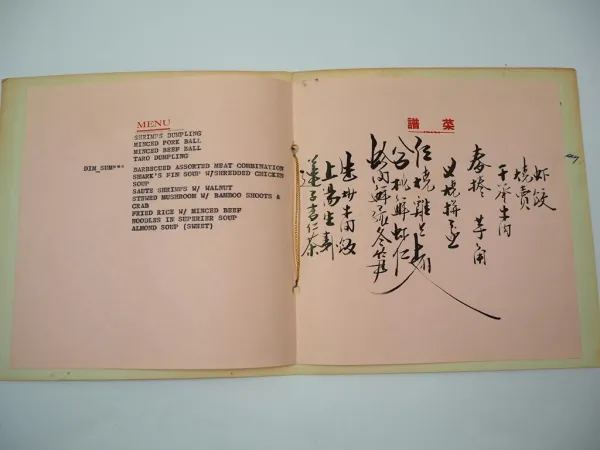 MENU
SHRIMPS DUMPLING
MINCED PORK BALL
MINCED BEEF BALL
TARO DUMPLING
DIM SUM
BARBECUED ASSORTED MEAT COMBINATION
SHARK'S FIN SOUP W/SHREDDED CHICKEN
SOUP
SAUTE SHRIMPS W/ WALNUT
STEWED MUSHROOM W/ BAMBOO SHOOTS &
CRAB
FRIED RICE W/ MINCED BEEF
NOODLES IN SUPERIER SOUP
ALMOND SOUP (SWEET)
譜菜
虾饺
燒賣
干蒸牛肉
春捲 芋角
叉燒拼盆
红燒雞
合桃鲜虾仁
鲜菰冬笋
牛肉飯
上湯生麵
蓮子杏仁茶